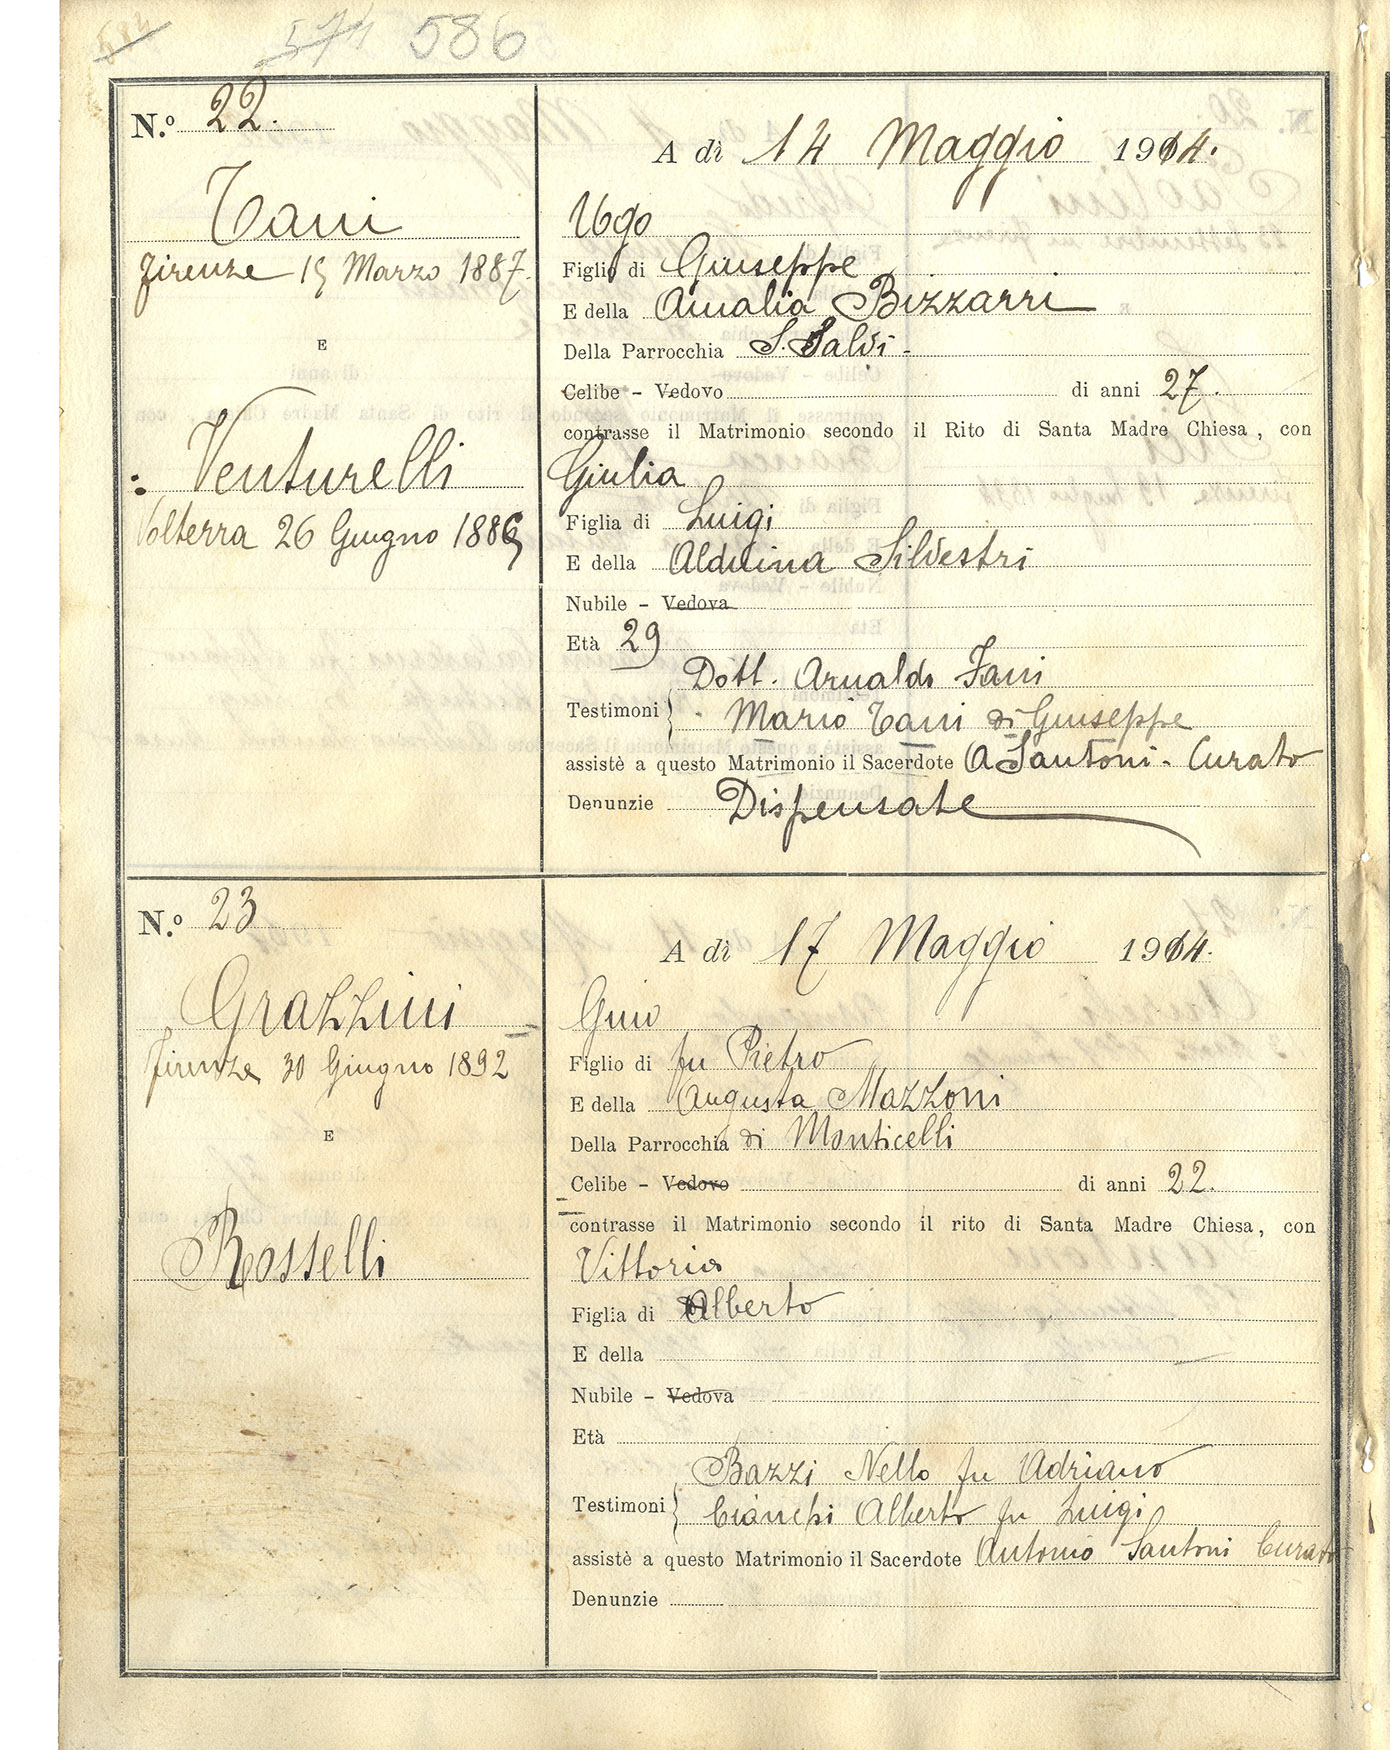 571 586
N.º 22.
Tani
Firenze 15 Marzo 1887.
E
Venturelli
Volterra 26 Giugno 1885
A dì 14 Maggio 1914.
Ugo
Figlio di Giuseppe
E della Amalia Bizzarri
Della Parrocchia S. Salvi -
Celibe - Vedovo di anni 27.
contrasse il Matrimonio secondo il Rito di Santa Madre Chiesa, con
Giulia
Figlia di Luigi
E della Alduina Silvestri
Nubile - Vedova
Età 29
Dott. Arnaldo Fani
Testimoni - Mario Tani di Giuseppe
assistè a questo Matrimonio il Sacerdote A Santoni - Curato
Denunzie Dispensate
N.º 23
Grazzini
Firenze 30 Giugno 1892
E
Rosselli
A dì 17 Maggio 1914.
Gino
Figlio di fu Pietro
E della Augusta Mazzoni
Della Parrocchia di Monticelli
Celibe - Vedovo di anni 22.
contrasse il Matrimonio secondo il rito di Santa Madre Chiesa, con
Vittoria
Figlia di Alberto
E della
Nubile - Vedova
Età
Bazzi Nello fu Adriano
Testimoni Cianchi Alberto fu Luigi
assistè a questo Matrimonio il Sacerdote Antonio Santoni Curato
Denunzie